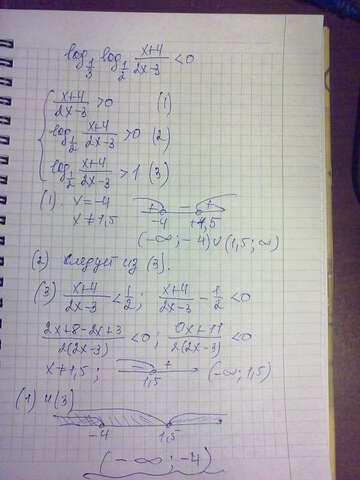 log_{1/3} log_{1/2} (x+4)/(2x-3) < 0
{ (x+4)/(2x-3) > 0 (1)
log_{1/2} (x+4)/(2x-3) > 0 (2)
log_{1/2} (x+4)/(2x-3) > 1 (3)
(1). x=-4
x≠1,5
+ - +
-4 +1,5
(-∞; -4)∪(1,5; ∞)
(2) следует из (3).
(3) (x+4)/(2x-3) < 1/2; (x+4)/(2x-3) - 1/2 < 0
(2x+8-2x+3)/(2(2x-3)) < 0; (0x+11)/(2(2x-3)) < 0
x≠1,5; - + (-∞; 1,5)
1,5
(1) и (3)
-4 1,5
(-∞; -4)